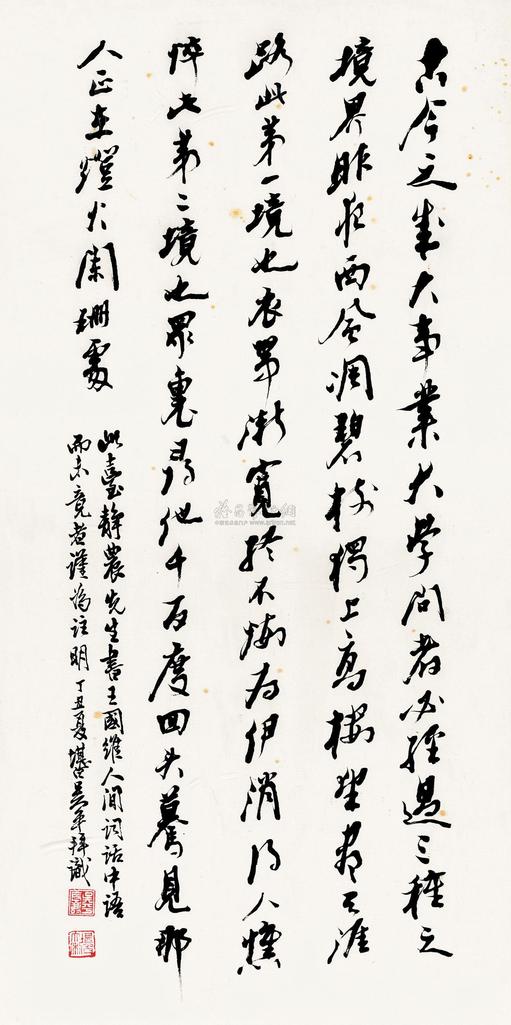 古今之成大事業大學問者必經過三種之
境界昨夜西風凋碧樹獨上高樓望盡天涯
路此第一境也衣帶漸寬終不悔為伊消得人憔
悴此第二境也眾裏尋他千百度回頭驀見那
人正在燈火闌珊處
此臺靜農先生書王國維人間詞話中語
而未竟者謹為註明丁丑夏堪白吳平拜識